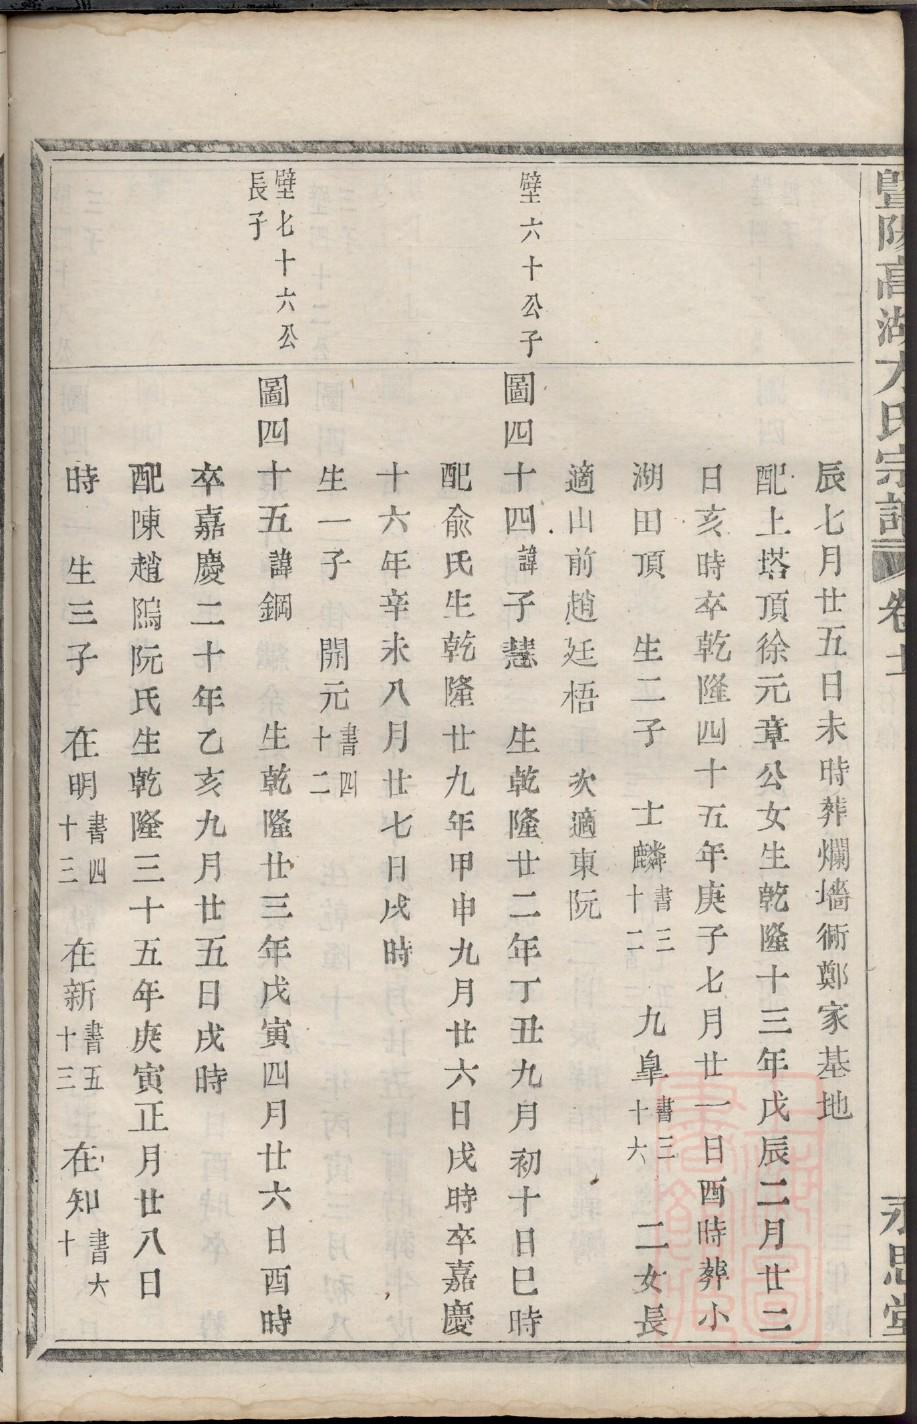 暨陽高湖方氏宗譜 卷十 永思堂
辰七月廿五日未時葬爛墻衕鄭家基地
配上塔頂徐元章公女生乾隆十三年戊辰二月廿二
日亥時卒乾隆四十五年庚子七月廿一日酉時葬小
湖田頂 生二子 士麟書三十二 九臯書三十六 二女長
適山前趙廷梧 次適東阮
壁六十公子
圖四十四諱子慧 生乾隆廿二年丁丑九月初十日巳時
配俞氏生乾隆廿九年甲申九月廿六日戌時卒嘉慶
十六年辛未八月廿七日戌時
生一子 開元書四十二
壁七十六公長子
圖四十五諱鋼 生乾隆廿三年戊寅四月廿六日酉時
卒嘉慶二十年乙亥九月廿五日戌時
配陳趙隝阮氏生乾隆三十五年庚寅正月廿八日
時 生三子 在明書四十三 在新書五十三 在知書六十